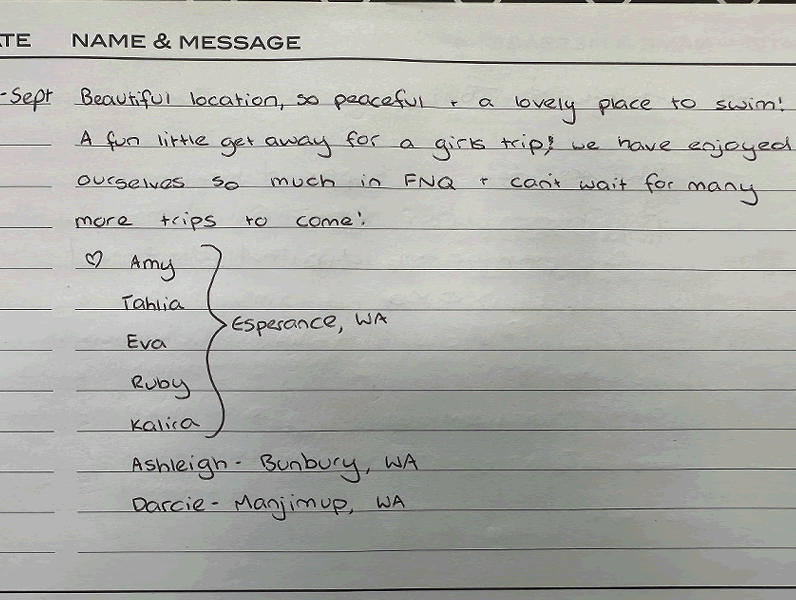 TE NAME & MESSAGE
-Sept Beautiful location, so peaceful + a lovely place to swim!
A fun little get away for a girls trip! we have enjoyed
ourselves so much in FNQ + can't wait for many
more trips to come!
♡ Amy
Tahlia
Esperance, WA
Eva
Ruby
Kalica
Ashleigh - Bunbury, WA
Darcie - Manjimup, WA